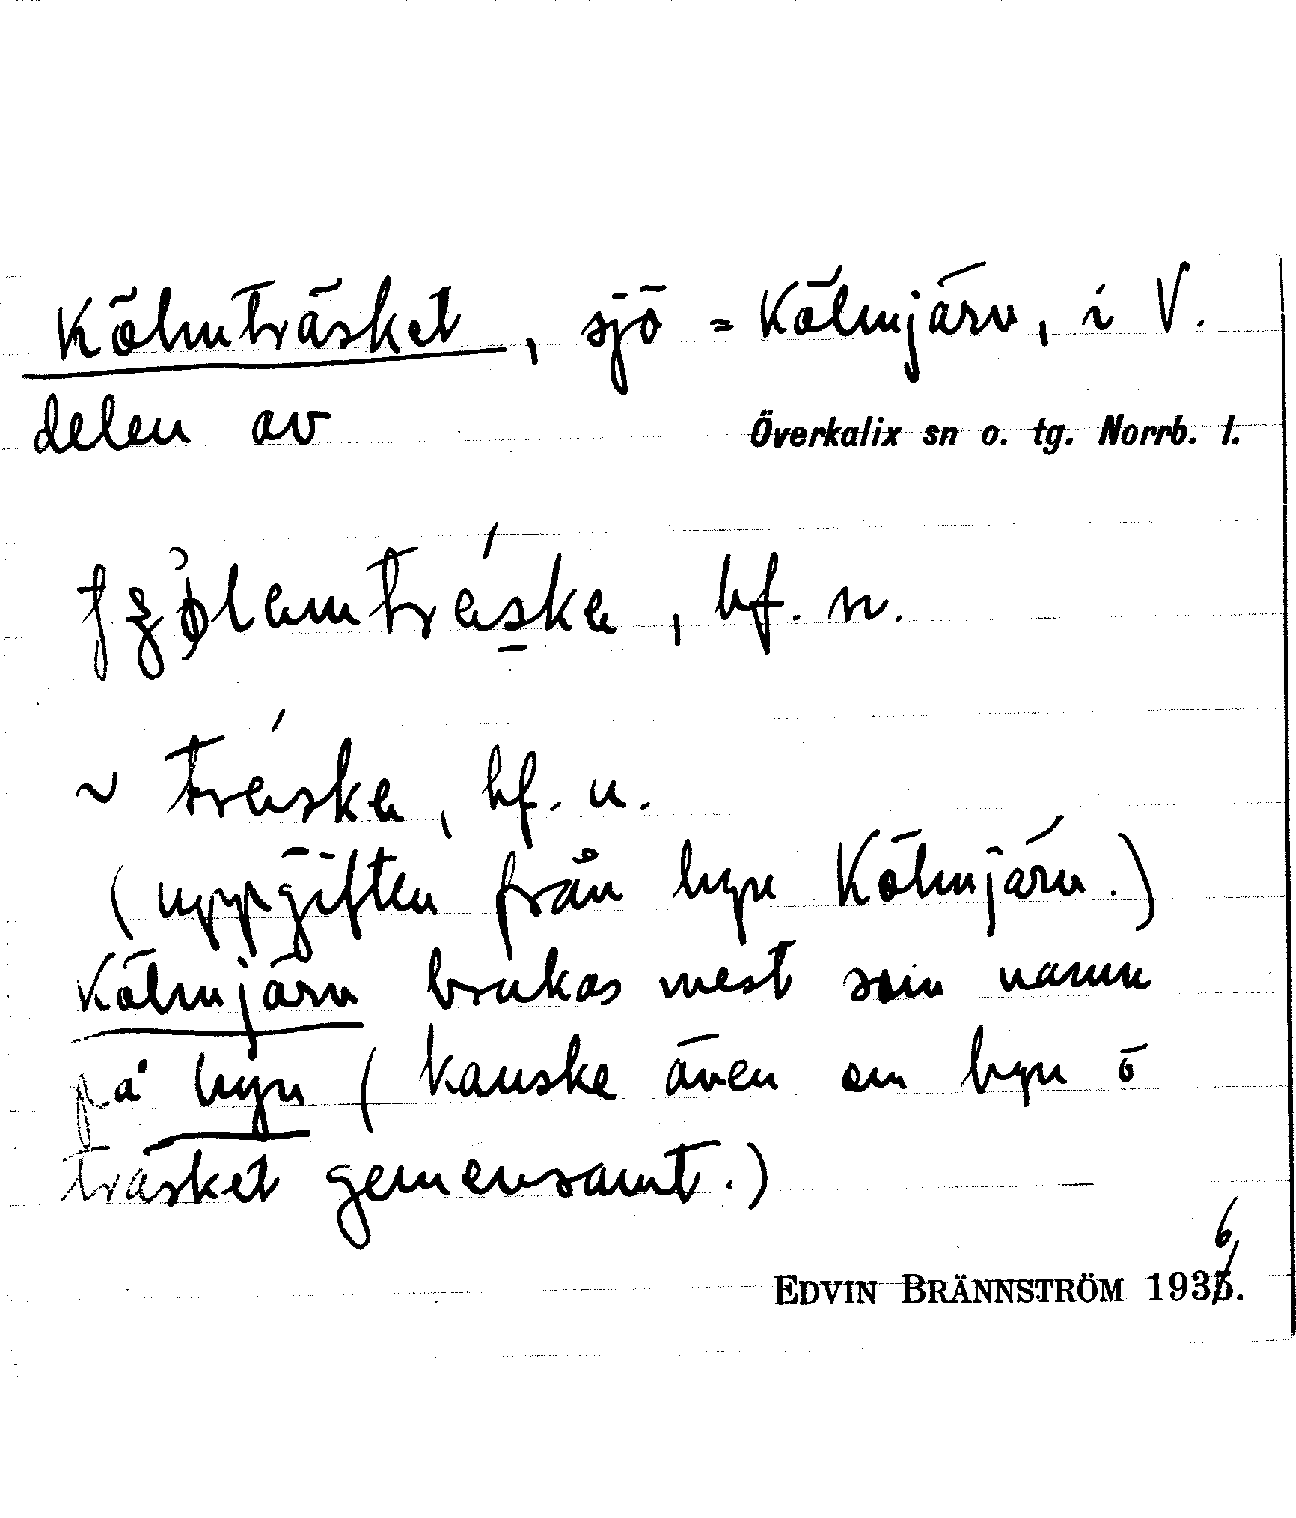 Kölmträsket, sjö = Kölmjärv, i V.
delen av Överkalix sn o. tg. Norrb. l.
, bf. n.
~ träska, bf. n.
(uppgiften från byn Kölmjärv.)
Kölmjärv brukas mest som namn
på byn (kanske även om byn o
träsket gemensamt.)
6
EDVIN BRÄNNSTRÖM 1935.